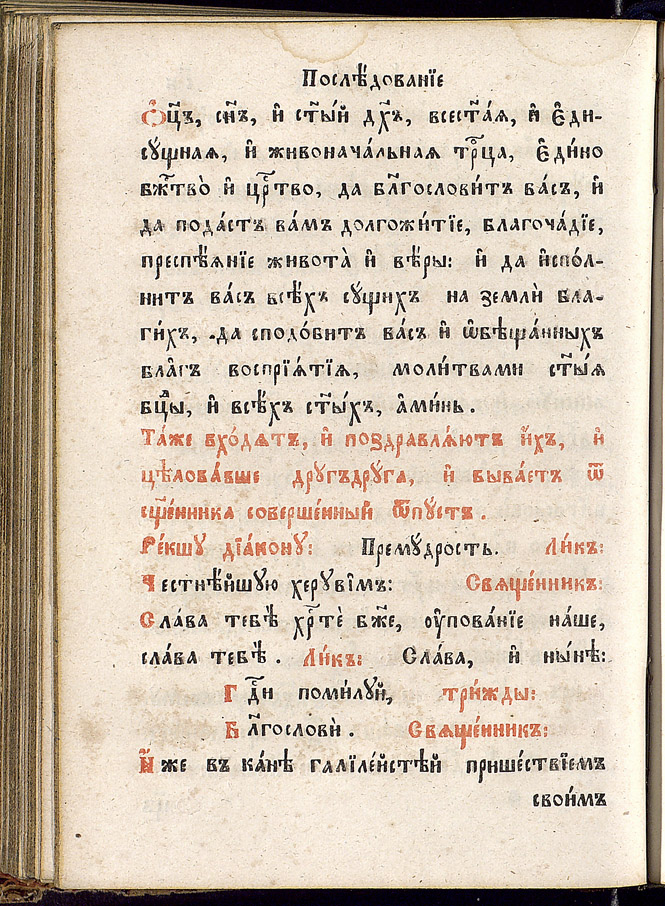 Послѣ́дованїе
Ѻ҆ц҃ъ, сн҃ъ, и҆ ст҃ы́й дх҃ъ, всест҃а́ѧ, и҆ є҆ди-
сꙋ́щнаѧ, и҆ живонача́льнаѧ трⷪ҇ца, є҆ди́но
бжⷭ҇тво̀ и҆ црⷭ҇тво, да блⷭ҇гослови́тъ ва́съ, и҆
да пода́стъ ва́мъ долгожи́тїе, благоча́дїе,
преспѣ́ѧнїе живота̀ и҆ вѣ́ры: и҆ да и҆спо́л-
нитъ ва́съ всѣ́хъ сꙋ́щихъ на землѝ бла-
ги́хъ, да сподо́битъ ва́съ и҆ ѡ҆бѣща́нныхъ
бла̑гъ воспрїѧ́тїѧ, моли́твами ст҃ы́ѧ
бцⷣы, и҆ всѣ́хъ ст҃ы́хъ, а҆ми́нь.
Та́же вхо́дѧтъ, и҆ поздравлѧ́ютъ и҆̀хъ, и҆
цѣлова́вше дрꙋгъдрꙋ́га, и҆ быва́етъ ѿ
сщ҃е́нника соверше́нный ѿпꙋстъ.
Ре́кшꙋ дїа́конꙋ: Премꙋ́дрость. Ли́къ:
Честнѣ́йшꙋю херꙋві́мъ: Свѧще́нникъ:
Сла́ва тебѣ̀ хрⷭ҇тѐ бж҃е, ᲂу҆пова́нїе на́ше,
сла́ва тебѣ̀. Ли́къ: Сла́ва, и҆ ны́нѣ:
Гдⷭ҇и поми́лꙋй, три́жды:
Блⷭ҇гословѝ. Свѧще́нникъ:
И҆́же въ ка́нѣ галїле́йстѣй прише́ствїемъ
свои́мъ